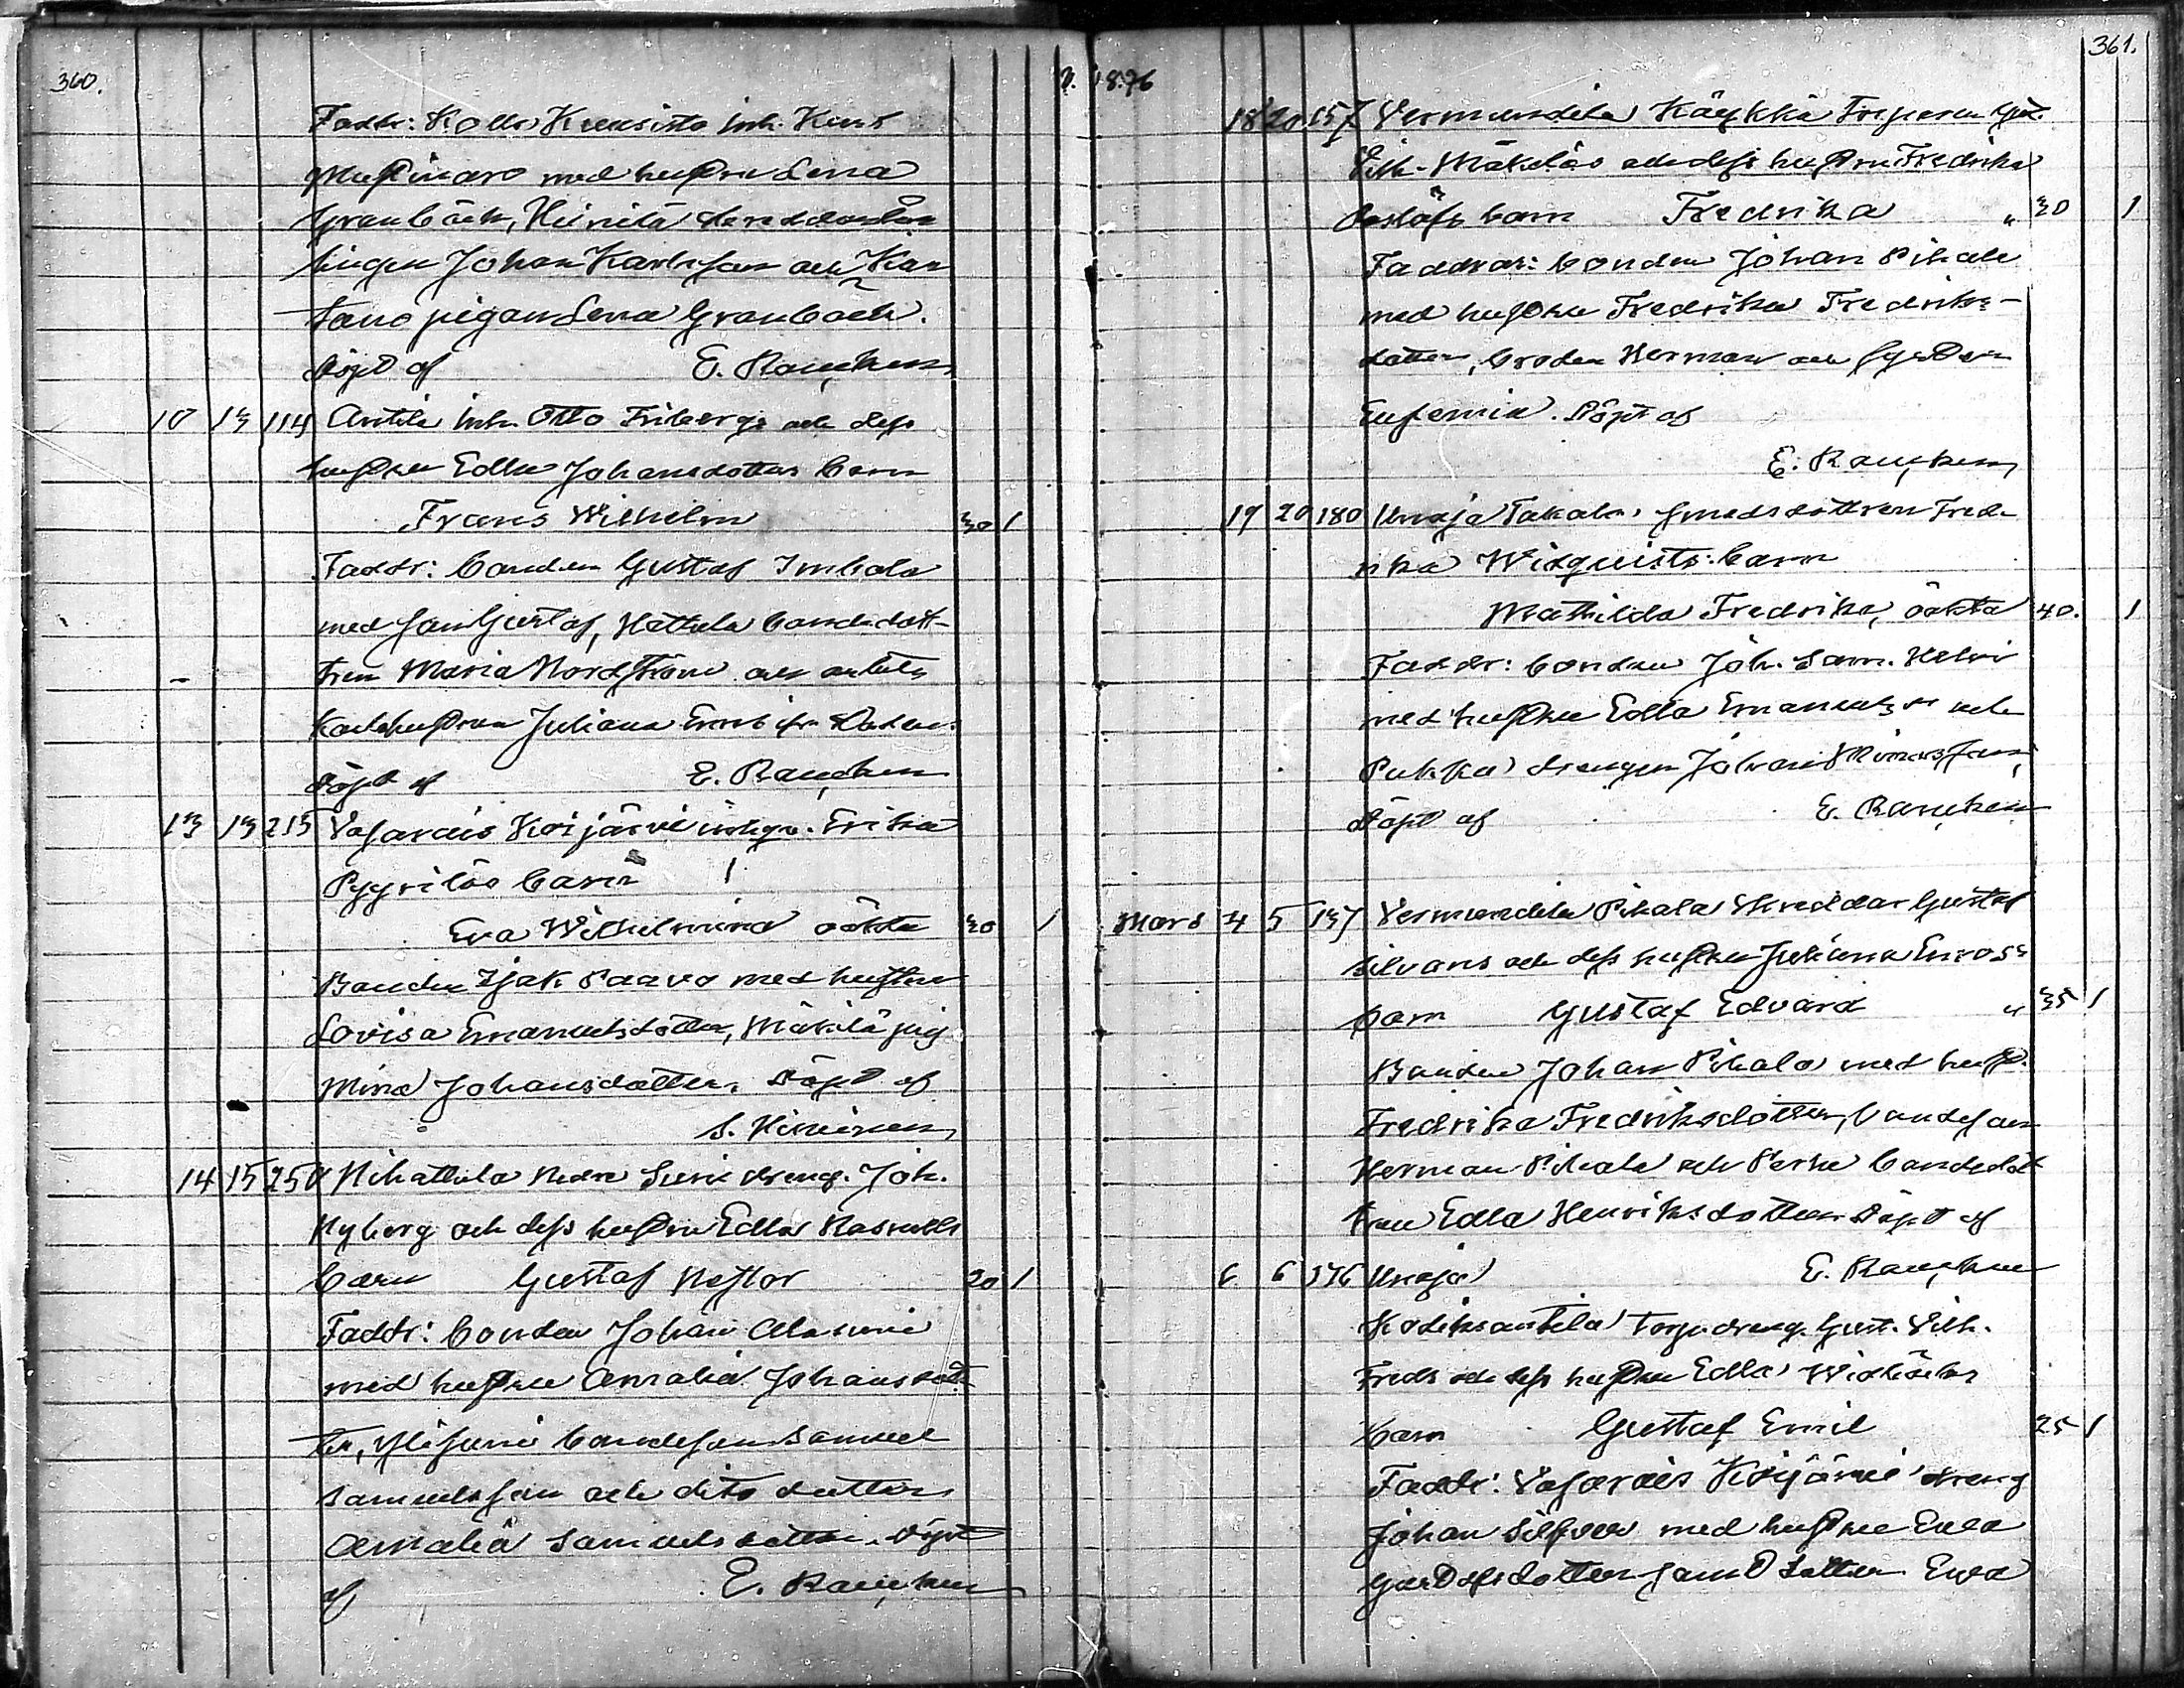 360.
Faddr: Kolk Kuusisto inh.
med hustru Lena
Granbäck, Heinilä
lingen Johan Karlsson och
tano pigan Lena Granback.
döpt af E. Rancken
10 13 114 Antila inh. Otto Friberg och dess
hustru Edla Johansdotters barn
Frans Wilhelm 30 1
Faddr: bonden Gustaf Imbala
med son Gustaf, Hattula bondedott-
tren Maria Nordström och
Karlshustrun Juliana
döpt af E. Rancken
13 13 215 Vafarais Koijärvi inhys. Erika
Pyyriläs barn
Eva Wilhelmina oäkta 30 1
Bonden Isak Paavo med hustru
Lovisa Emanuelsdotter, Mäkilä pig.
Mina Johansdotter. Döpt af
S. Hirvinen
14 15 250 Hihattula Nedre Suni dreng. Joh.
Nyberg och dess hustru Edla
barn Gustaf Nestor 20 1
Faddr: bonden Johan Alasuni
med hustru Amalia Johansdot-
ter, Ylisuni bondeson Samuel
Samuelsson och dito dotter
Amalia Samuelsdotter. Döpt
af E. Rancken
1876
361.
18 20 157 Vermundila Käykkä Torparen Gust.
Vilh. Mäkiläs och dess hustru Fredrika
barn Fredrika " 30 1
Faddrar: bonden Johan Pihala
med hustru Fredrika Fredriks-
dotter, broder Herman och syster
Eufemia. Döpt af
E. Rancken
19 20 180 Unaja Takala, smedsdottren Fred-
rika Widquists barn
Mathilda Fredrika, oäkta 40. 1
Faddr: bonden Joh. Sam. Helvi
med hustru Edla Emanuelsdr och
Pukka drengen Johan
döpt af E. Rancken
Mars 4 5 137 Vermundila Pihala Skreddar Gustaf
Silvans och dess hustru Juliana
barn Gustaf Edvard " 35 1
Bonden Johan Pihala med hust.
Fredrika Fredriksdotter, bondeson
Herman Pihala och bondedot-
tren Edla Henriksdotter. Döpt af
6 6 176 Unaja E. Rancken
Kodiksantila Torpa dreng. Gust. Vilh.
Freds och dess hustru Edla
barn Gustaf Emil 25 1
Faddr: Vafarais Koijärvi dreng
Johan Silfver med hustru Eva
Gustafsdotter samt dotter Eva